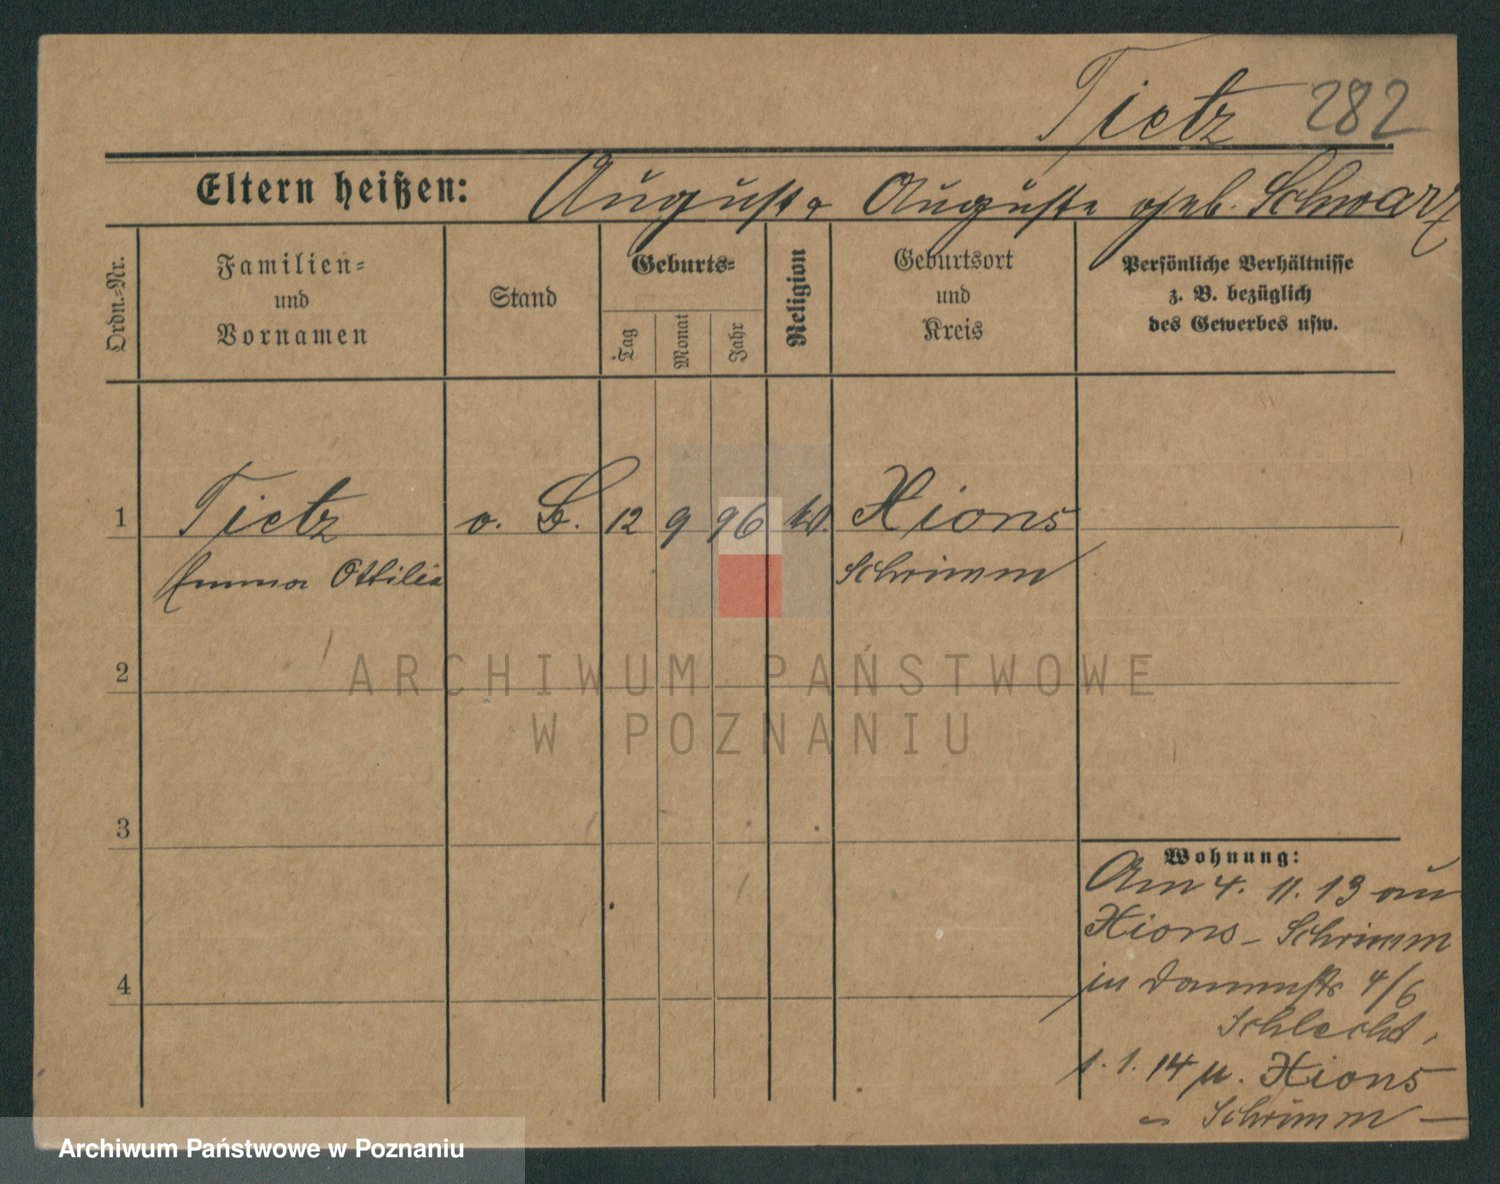 Tietz 282
Eltern heißen: August & Auguste geb. Schwarz
Ordn.=Nr.
Familien=
und
Vornamen
Stand
Geburts=
Tag
Monat
Jahr
Religion
Geburtsort
und
Kreis
Persönliche Verhältnisse
z. B. bezüglich
des Gewerbes usw.
1 Tietz o. 12 9 96 Xions
Emma Ottilie Schrimm
2
ARCHIWUM PAŃSTWOWE
W POZNANIU
3
Wohnung:
Am 4. 11. 13 aus
Xions - Schrimm
in Dammstr 4/6
4
Schlecht.
1. 1. 14 n. Xions
Schrimm
Archiwum Państwowe w Poznaniu